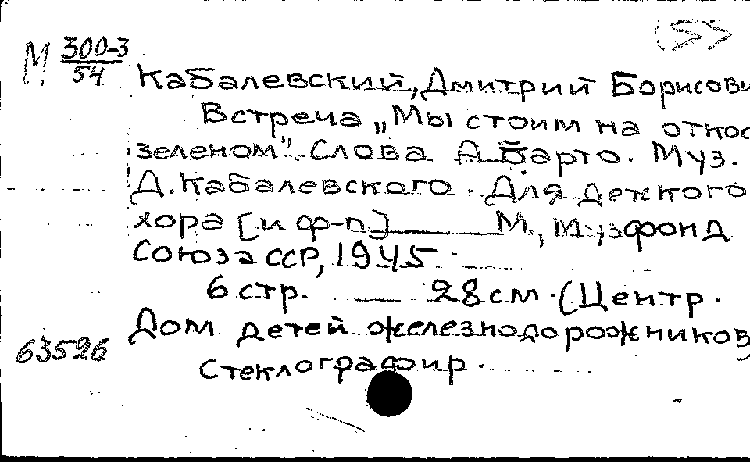 М 300-3
54
Кабалевский, Дмитрий Борисови
Встреча „Мы стоим на откос
зеленом". Слова А. Барто. Муз.
Д. Кабалевского. Для детского
хора [и ф-п] М., Музфонд
Союза ССР, 1945.
6 стр. — 28 см. (Центр.
Дом детей железнодорожников
63526
Стеклографир.